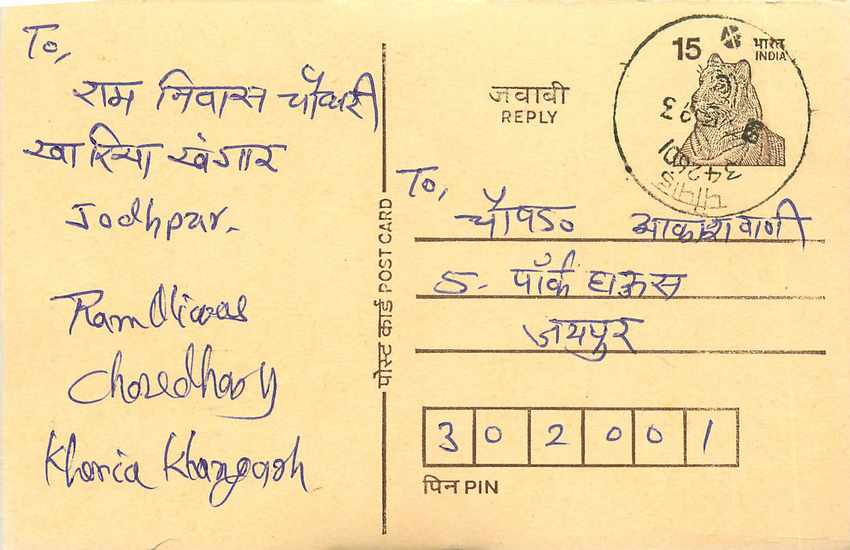 To,
राम निवास चौधरी
खारिया खंगार
Jodhpur.
Ramniwas
Choudhary
Kharia Khangarh
पोस्ट कार्ड POST CARD
जवाबी
REPLY
15 भारत
INDIA
93
342601
To,
चौपड़ आकाशवाणी
5. पॉर्क हाऊस
जयपुर
302001
पिन PIN